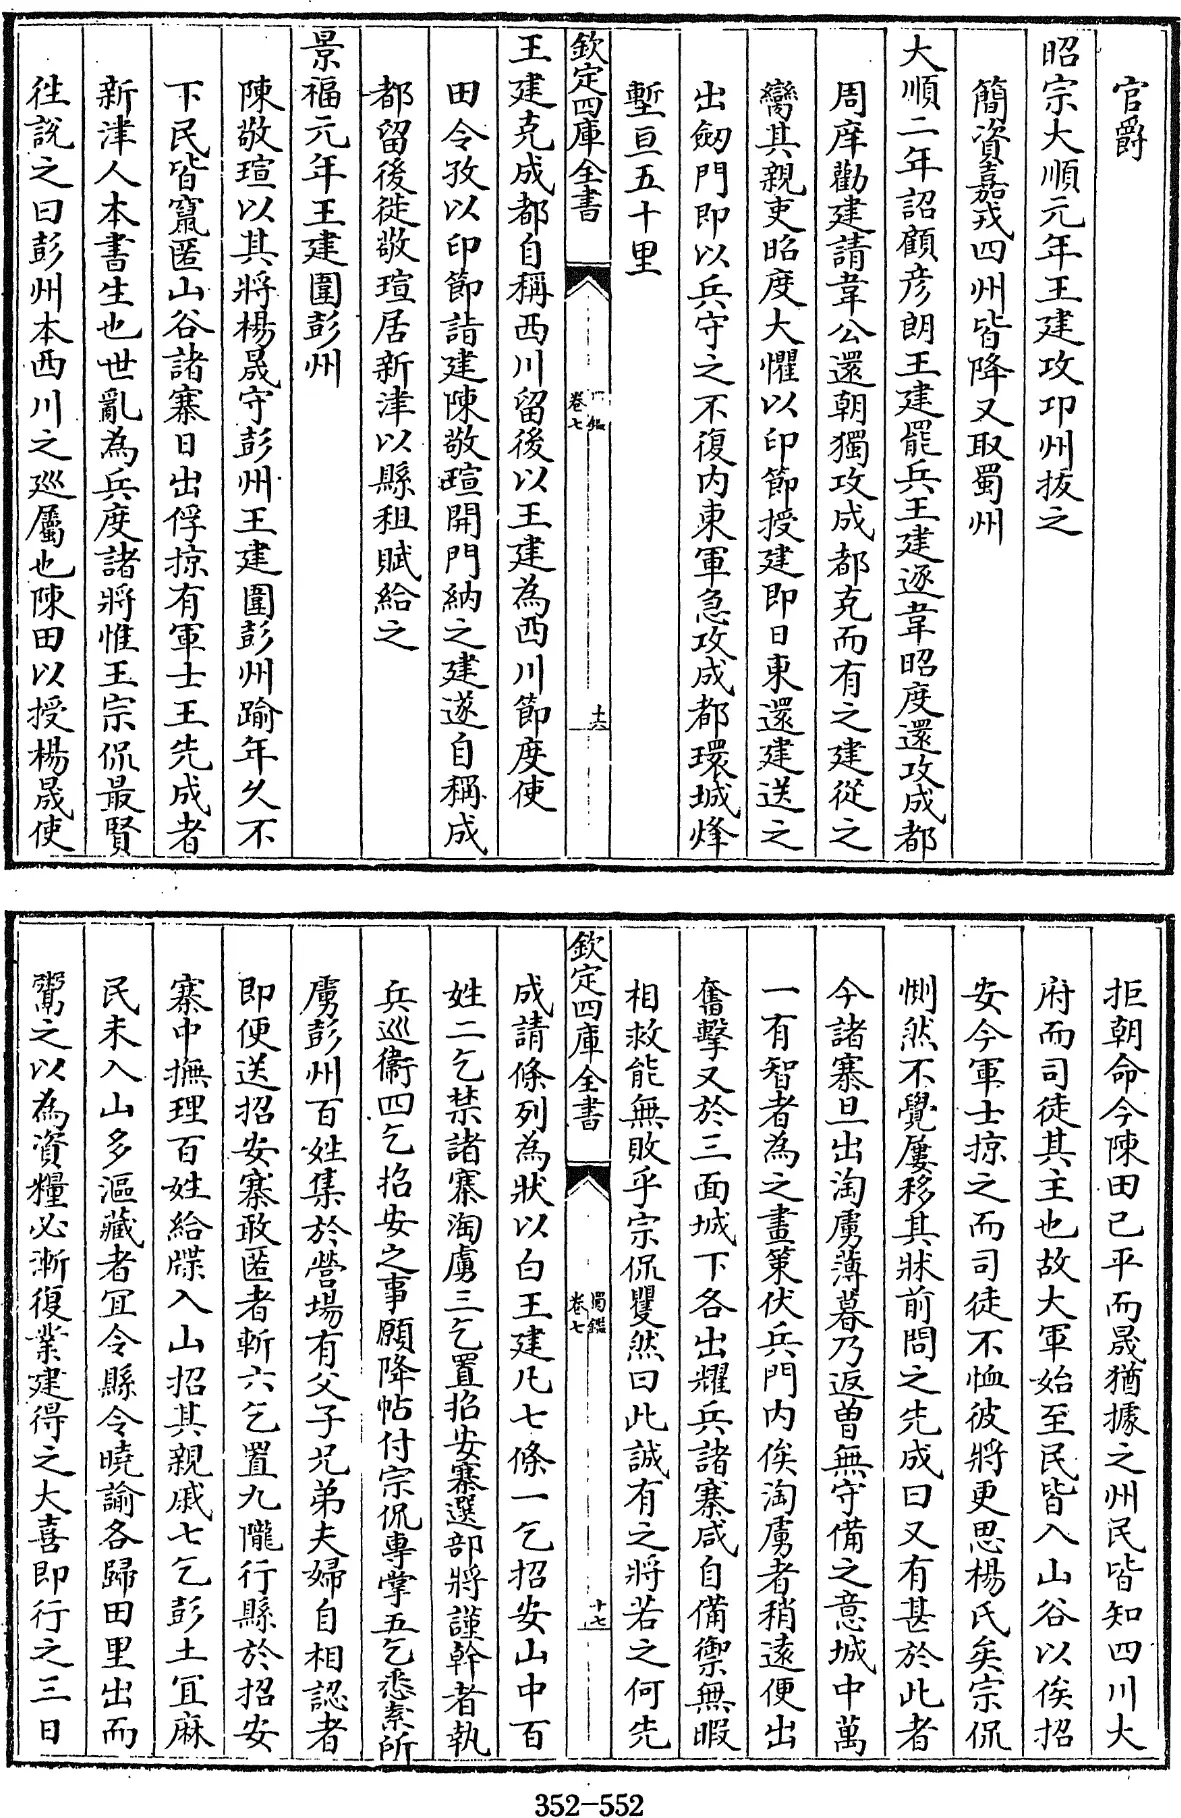 官爵
昭宗大順元年王建攻邛州拔之
簡資嘉戎四州皆降又取蜀州
大順二年詔顧彦朗王建罷兵王建逐韋昭度還攻成都
周庠勸建請韋公還朝獨攻成都克而有之建從之
臠其親吏昭度大懼以印節授建即日東還建送之
出劔門即以兵守之不復内東軍急攻成都環城烽
塹亘五十里
欽定四庫全書
蜀鑑
卷七
十六
王建克成都自稱西川留後以王建為西川節度使
田令孜以印節詣建陳敬瑄開門納之建遂自稱成
都留後徙敬瑄居新津以縣租賦給之
景福元年王建圍彭州
陳敬瑄以其將楊晟守彭州王建圍彭州踰年久不
下民皆竄匿山谷諸寨日出俘掠有軍士王先成者
新津人本書生也世亂為兵度諸將惟王宗侃最賢
往説之曰彭州本西川之廵屬也陳田以授楊晟使
拒朝命今陳田已平而晟猶據之州民皆知四川大
府而司徒其主也故大軍始至民皆入山谷以俟招
安今軍士掠之而司徒不恤彼將更思楊氏矣宗侃
惻然不覺屢移其牀前問之先成曰又有甚於此者
今諸寨旦出淘虜薄暮乃返曽無守備之意城中萬
一有智者為之畫策伏兵門内俟淘虜者稍逺便出
奮擊又於三面城下各出耀兵諸寨咸自備禦無暇
相救能無敗乎宗侃矍然曰此誠有之將若之何先
欽定四庫全書
蜀鑑
卷七
十七
成請條列為狀以白王建凡七條一乞招安山中百
姓二乞禁諸寨淘虜三乞置招安寨選部將謹幹者執
兵巡衞四乞招安之事願降帖付宗侃專掌五乞悉索所
虜彭州百姓集於營場有父子兄弟夫婦自相認者
即便送招安寨敢匿者斬六乞置九隴行縣於招安
寨中撫理百姓給牒入山招其親戚七乞彭土宜麻
民未入山多漚藏者宜令縣令曉諭各歸田里出而
鬻之以為資糧必漸復業建得之大喜即行之三日
352-552